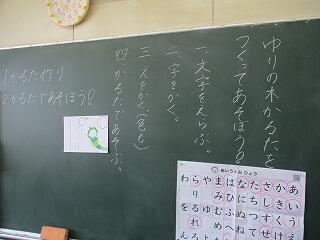 ゆりの木かるたを
つくってあそぼう!
一、文字をえらぶ。
二、字をかく。
三、えをかく。(色も)
四、かるたであそぶ。
1 かるた作り
2 かるたであそぼう!
あいうえおひょう
あいう
かきくけ
さしすせ
たちつて
なにぬね
はひふへ
まみむめ
やゆ
らりるれろ
わを